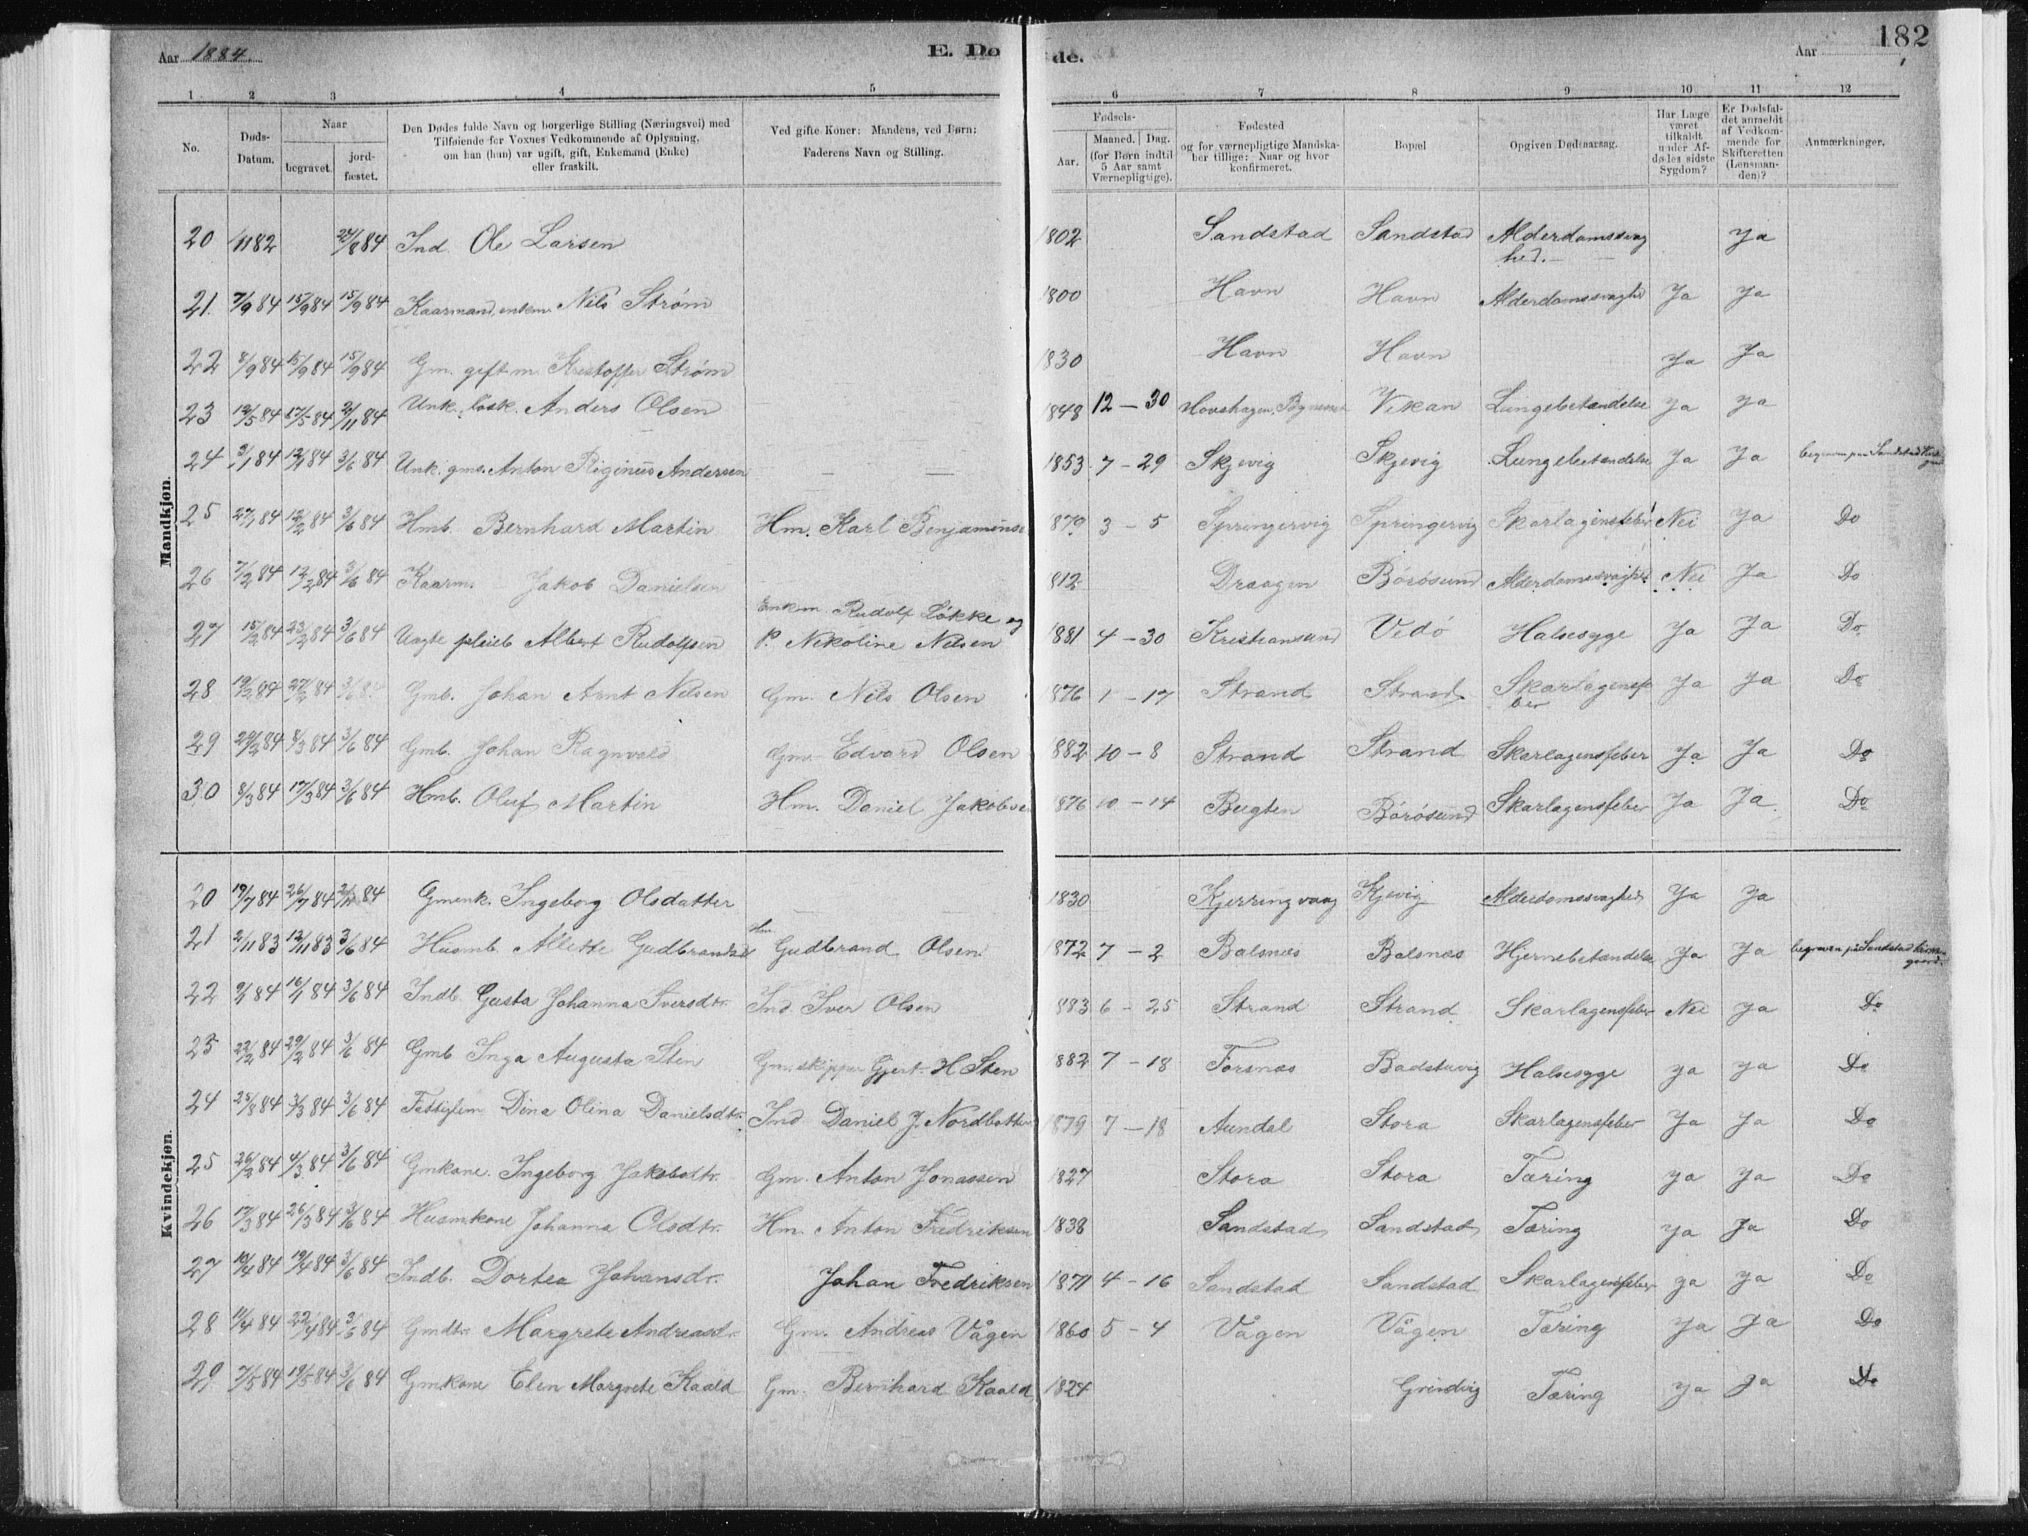 Aar 1884. E. Dø de. Aar 182
1 2 3 3 4 5 6 7 8 9 10 11 12
No. Døds-Datum. Naar begravet. jordfæstet. Den Dødes fulde Navn og borgerlige Stilling (Næringsvei) med Tilføiende for Voxnes Vedkommende af Oplysning, om han (hun) var ugift, gift, Enkemand (Enke) eller fraskilt. Ved gifte Koner: Mandens, ved Børn: Faderens Navn og Stilling. Fødsels- Aar. Maaned. Dag. (for Børn indtil 5 Aar samt Værnepligtige). Fødested og for værnepligtige Mandskaber tillige: Naar og hvor konfirmeret. Bopæl Opgiven Dødsaarsag. Har Læge været tilkaldt under Afdødes sidste Sygdom? Er Dødsfaldet anmeldt af Vedkommende for Skifteretten (Lensmanden)? Anmærkninger.
Mandkjøn.
20 1/11 82 24/8 84 Ind. Ole Larsen 1802 Sandstad Sandstad Alderdomssvaghed. Ja
21. 7/9 84 15/9 84 15/9 84 Kaarmand, enkem. Nils Strøm 1800 Havn Havn Alderdomssvaghed Ja Ja
22 8/9 84 15/9 84 15/9 84 Gm. gift m. Kristoffer Strøm 1830 Havn Havn Ja Ja
23 12/5 84 17/5 84 2/11 84 Unk. losk. Anders Olsen 1848 12 – 30 Havshagen, Bynesset Vikan Lungebetændelse Ja Ja
24 3/1 84 12/1 84 3/6 84 Unk. gms. Anton Riginius Andersen 1853 7 – 29 Skjevig Skjevig Lungebetændelse Ja Ja begraven paa Sandstad Kirkegaard
25 27/1 84 12/2 84 3/6 84 Hmb. Bernhard Martin Hm. Karl Benjaminse 879 3 – 5 Springervig Springervig Skarlagensfeber Nei Ja Do
26 7/2 84 12/2 84 3/6 84 Kaarm. Jakob Danielsen 812 Draagen Börösund Alderdomssvaghed Nei Ja Do
27 15/2 84 23/2 84 3/6 84 Uægte pleieb Albert Rudolfsen Enkm. Rudolf Løkke og P. Nikoline Nilsen 1881 4 – 30 Kristiansund Vedö Halsesyge Ja Ja Do
28 19/2 84 27/2 84 3/6 84 Gmb. Johan Arnt Nilsen Gm. Nils Olsen 876 1 – 17 Strand Strand Skarlagensfeber Ja Ja Do
29 29/2 84 8/3 84 3/6 84 Gmb. Johan Ragnvald Gm. Edvard Olsen 882 10 – 8 Strand Strand Skarlagensfeber Ja Ja Do
30 8/3 84 17/3 84 3/6 84 Hmb. Oluf Martin Hm. Daniel Jakobse 876 10 – 14 Bugten Börösund Skarlagensfeber Ja Ja Do
Kvindekjøn.
20 19/7 84 26/7 84 2/11 84 Gmenk. Ingeborg Olsdatter 1830 Kjerringvaag Kjevig Alderdomssvaghed Ja Ja
21 2/11 83 12/11 83 3/6 84 Husmb. Allette Gudbrandsd Hm. Gudbrand Olsen 1872 7 – 2 Balsnæs Balsnæs Hjernebetændelse Ja Ja begraven på Sandstad kirkegaard.
22 9/1 84 16/1 84 3/6 84 Indb. Gusta Johanna Iversdtr. Ind Iver Olsen 883 6 – 25 Strand Strand Skarlagensfeber Nei Ja Do
23 22/2 84 29/2 84 3/6 84 Gmb Inga Augusta Sten Gm. skipper Gjert H Sten 882 7 – 18 Forsnæs Badstuvig Halsesyge Ja Ja Do
24 25/2 84 3/3 84 3/6 84 Fattiglem Dina Olina Danielsdtr. Ind Daniel J. Nordbotten 1879 7 – 18 Aundal Stora Skarlagensfeber Ja Ja Do
25 26/2 84 4/3 84 3/6 84 Gmkone. Ingeborg Jakobsdtr. Gm. Anton Jonassen 1827 Stora Stora Tæring Ja Ja Do
26 17/3 84 26/3 84 3/6 84 Husmkone Johanna Olsdtr. Hm. Anton Fredriksen 1838 Sandstad Sandstad Tæring Ja Ja Do
27 10/4 84 19/4 84 3/6 84 Indb. Dortea Johansdr. Johan Fredriksen 1871 4 – 16 Sandstad Sandstad Skarlagensfeber Ja Ja Do
28 11/4 84 22/4 84 3/6 84 Gmdtr. Margrete Andreasd. Gm. Andreas Vågen 1860 5 – 4 Vågen Vågen Tæring Ja Ja Do
29 7/5 84 19/5 84 3/6 84 Gmkone Elen Margrete Kaald Gm. Bernhard Kaald 1824 Grindvig Tæring Ja Ja Do